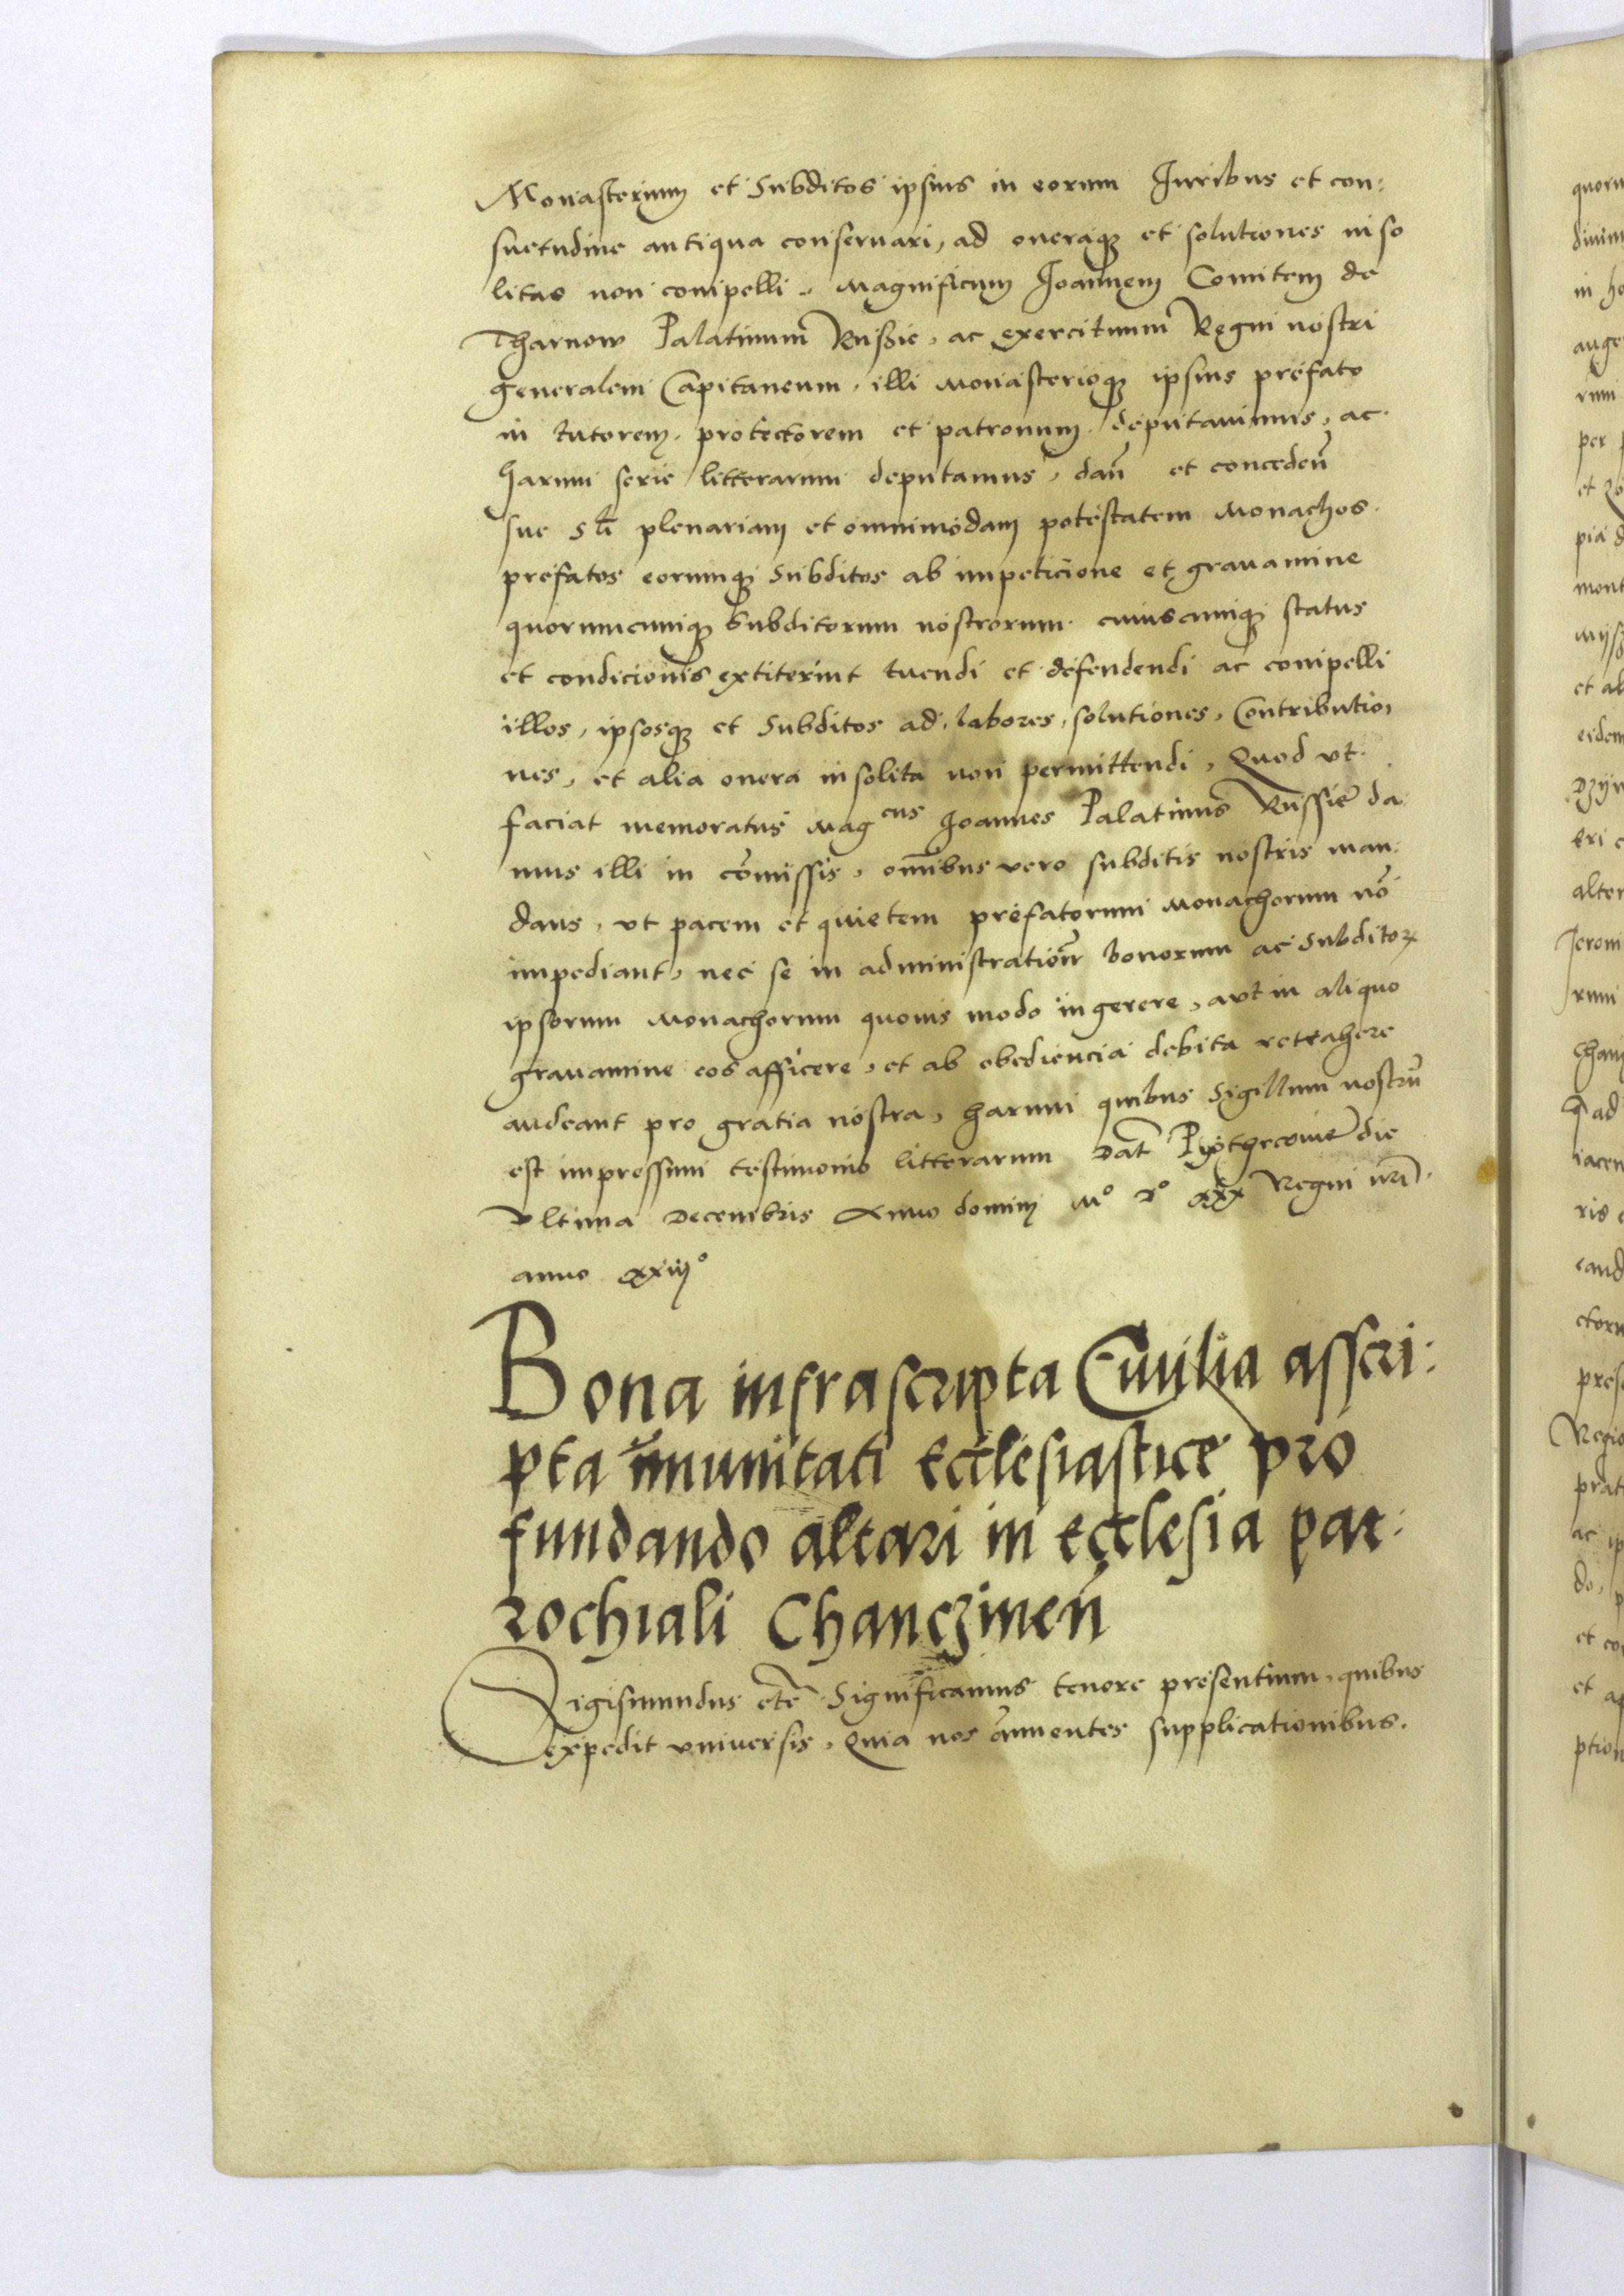 Monasterium et Subditos ipsius in eorum Iuribus et con:
suetudine antiqua conservari, ad oneraq₃ et solutiones inso
litas non compelli. Magnificum Ioannem Comitem de
Tharnow Palatinum Russie, ac exercituum Regni nostri
generalem Capitaneum, illi Monasterioq₃ ipsius prefato
in tutorem, protectorem et patronum deputavimus, ac
harum serie litterarum deputamus, dañ et concedeñ
sue plenariam et omnimodam potestatem Monachos
prefatos eorumq₃ Subditos ab impeticione et gravamine
quorumcumq₃ Subditorum nostrorum cuiuscumq₃ status
et condicionis extiterint tuendi et defendendi ac compelli
illos, ipsosq₃ et Subditos ad labores, solutiones, Contributio,
nes, et alia onera insolita non permittendi, Quod vt
faciat memoratus Mag^cus Ioannes Palatinus Russie da
mus illi in cõmissis, omĩbus vero subditis nostris man:
dans, vt pacem et quietem prefatorum Monachorum nõ
impediant, nec se in administrationẽ bonorum ac Subditoꝝ
ipsorum Monachorum quovis modo ingerere, aut in aliquo
gravamine eos afficere, et ab obediencia debita retrahere
audeant pro gratia nostra, harum quibus Sigillum nostrũ
est impressum testimonio litterarum Dat̃ Pyothrcovie die
Vltima Decembris Anno domini Mº Dº xxx Regni nr̃i
anno xxiiijº
Bona infrascripta Civilia asscri:
pta immunitati Ecclesiastice pro
fundando altari in Ecclesia par:
rochiali Chanczineñ
Sigismundus etc̃ Significamus tenore presentium, quibus
expedit vniversis, Quia nos annuentes supplicationibus.
quoru
in ho
auge
rum
per
pia d
mont
et al
eidem
alter
Jeroni
rum
Chanc
iacen
ris
eand
ctoru
prese
Regio
prat
ac ip
do, p
et co
et ap
ption